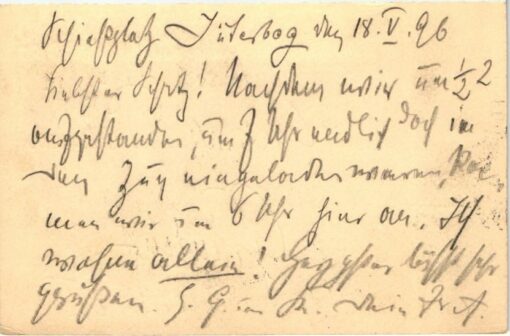 Schießplatz Jüterbog den 18. V. 96
Liebster Schatz! Nachdem wir um ½ 2
aufgestanden, um 7 Uhr endlich doch im
den Zug eingeladen waren, ka-
men wir um 6 Uhr hier an. Ich
wohne allein! läßt sehr
grüßen. Dein